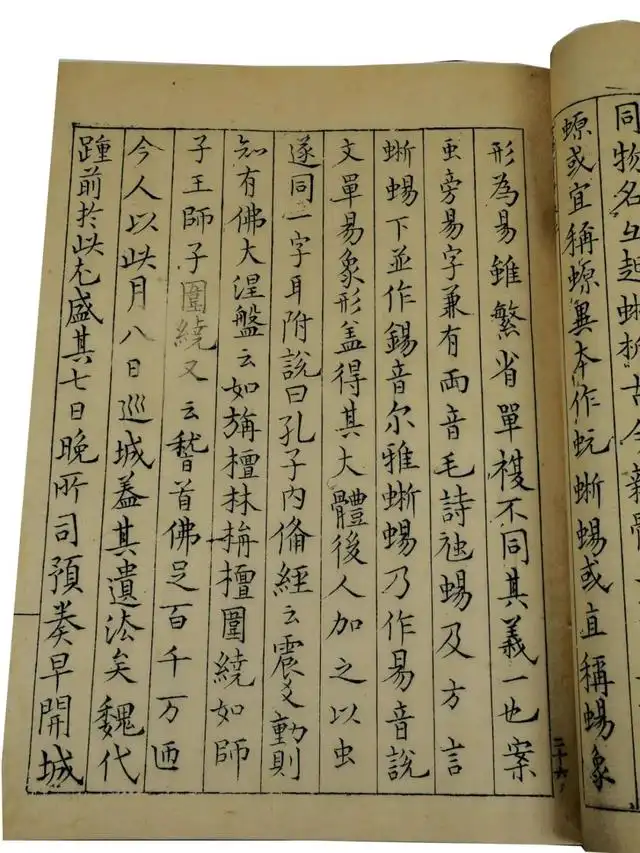 同物名互起蜥折古今
螈或宜稱螈異本作蚖蜥蜴或直稱蜴象
二十六
形為易雖繁省單複不同其義一也案
虫旁易字兼有兩音毛詩虺蜴及方言
蜥蜴下並作錫音尔雅蜥蜴乃作易音說
文單易象形盖得其大體後人加之以虫
遂同一字耳附說曰孔子內俻經云震爻動則
知有佛大涅盤云如旃檀林旃檀圍繞如師
子王師子圍繞又云稽首佛足百千万迊
今人以此月八日巡城葢其遺法矣魏代
踵前於此尤盛其七日晚所司預奏早開城